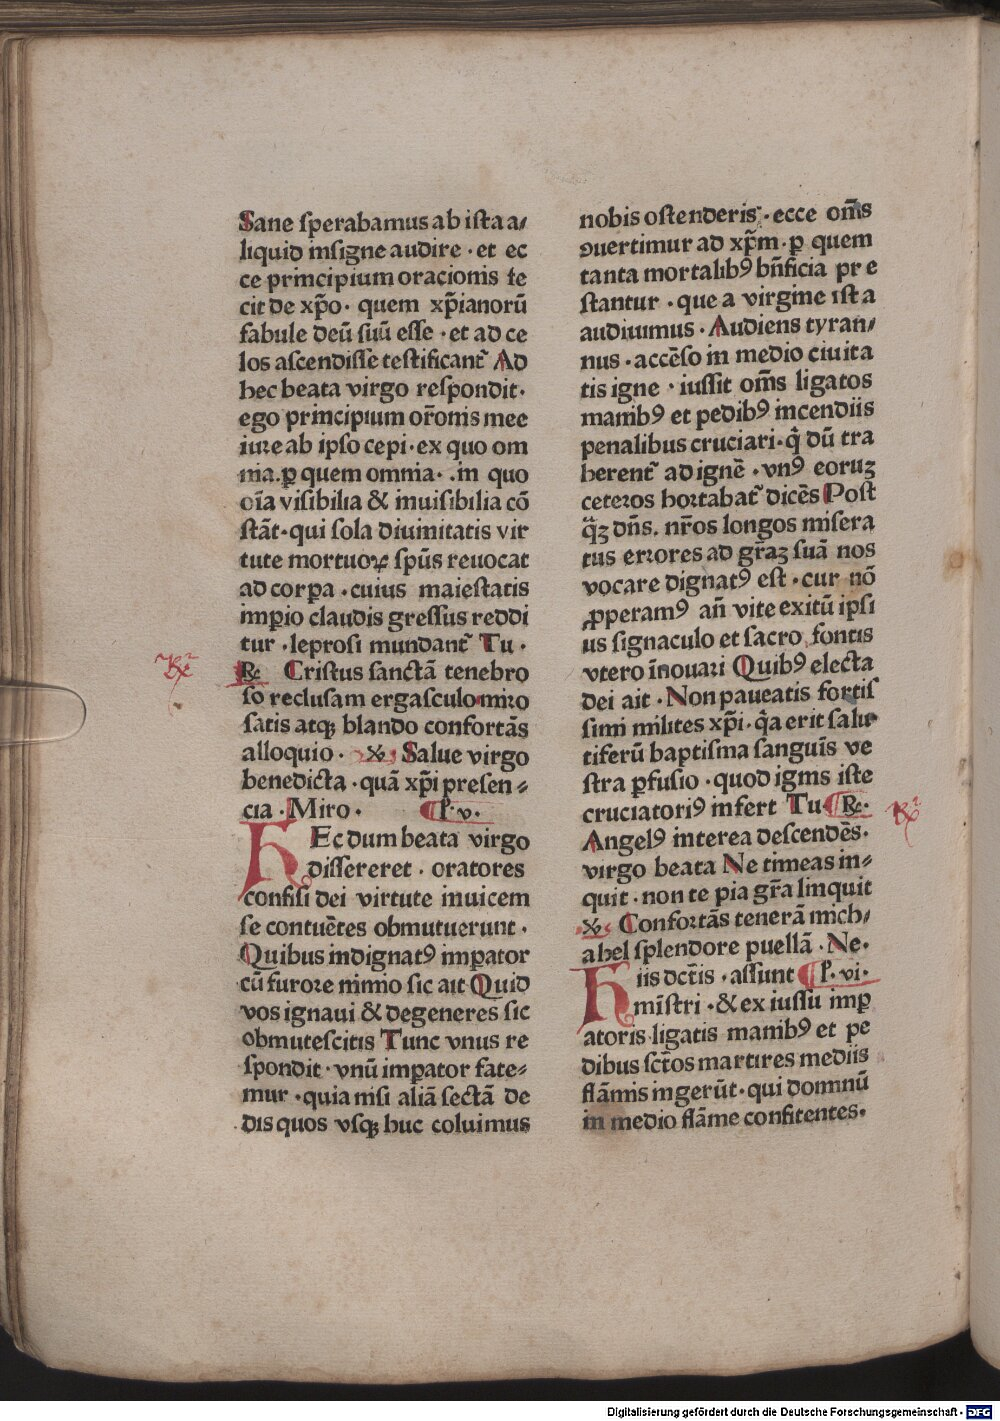 Sane sperabamus ab ista a/
liquid insigne audire · et ec
ce principium oracionis fe
cit de xp̄o · quem xp̄ianorū
fabule deū suū esse · et ad ce
los ascendisse testificant᷑ Ad
hec beata virgo respondit ·
ego principium or̄onis mee
iure ab ipso cepi · ex quo om
nia . ꝑ quem omnia · . in quo
oīa visibilia & inuisibilia cō
stāt · qui sola diuinitatis vir
tute mortuoꝝ sp̄us reuocat
ad corꝑa · cuius maiestatis
imꝑio claudis gressus reddi
tur · leprosi mundant᷑ Tu ·
℟ Cristus sanctā tenebro
so reclusam ergasculo miro
satis atqꝫ blando confortās
alloquio · ℣ Salue virgo
benedicta · quā xp̄i presen⸗
cia · Miro · ¶ P̄ · v ·
HEc dum beata virgo
dissereret · oratores
confisi dei virtute inuicem
se contuētes obmutuerunt ·
Quibus indignatꝰ imꝑator
cū furore nimio sic ait Quid
vos ignaui & degeneres sic
obmutescitis Tunc vnus re
spondit · vnū imꝑator fate⸗
mur · quia nisi aliā sectā de
dis quos vsqꝫ huc coluimus
nobis ostenderis · ecce om̄s
ꝯuertimur ad xp̄m · ꝑ quem
tanta mortalibꝰ bn̄ficia pre
stantur · que a virgine ista
audiuimus · Audiens tyran/
nus · accēso in medio ciuita
tis igne · iussit om̄s ligatos
manibꝰ et pedibꝰ incendiis
penalibus cruciari · q̄ dū tra
herent᷑ ad ignē · vnꝰ eoruꝫ
ceteros hortabat᷑ dicēs Post
q̄ꝫ dn̄s . nr̄os longos misera
tus errores ad gr̄aꝫ suā nos
vocare dignatꝰ est · cur nō
ꝓperamꝰ an̄ vite exitū ipsi
us signaculo et sacro fontis
vtero īnouari Quibꝰ electa
dei ait · Non paueatis fortis
simi milites xp̄i · q̄a erit salu
tiferū baptisma sanguīs ve
stra ꝑfusio · quod ignis iste
cruciatoriꝰ infert Tu ¶ ℟ ·
Angelꝰ interea descendēs ·
virgo beata Ne timeas in⸗
quit · non te pia gr̄a linquit
℣ Confortās tenerā mich/
ahel splendore puellā · Ne ·
Hiis dc̄tis · assunt ¶ P̄ · vi ·
mīstri · & ex iussu imꝑ
atoris ligatis manibꝰ et pe
dibus sc̄tos martires mediis
flāmis ingerūt · qui domnū
in medio flāme confitentes ·
Digitalisierung gefördert durch die Deutsche Forschungsgemeinschaft - DFG